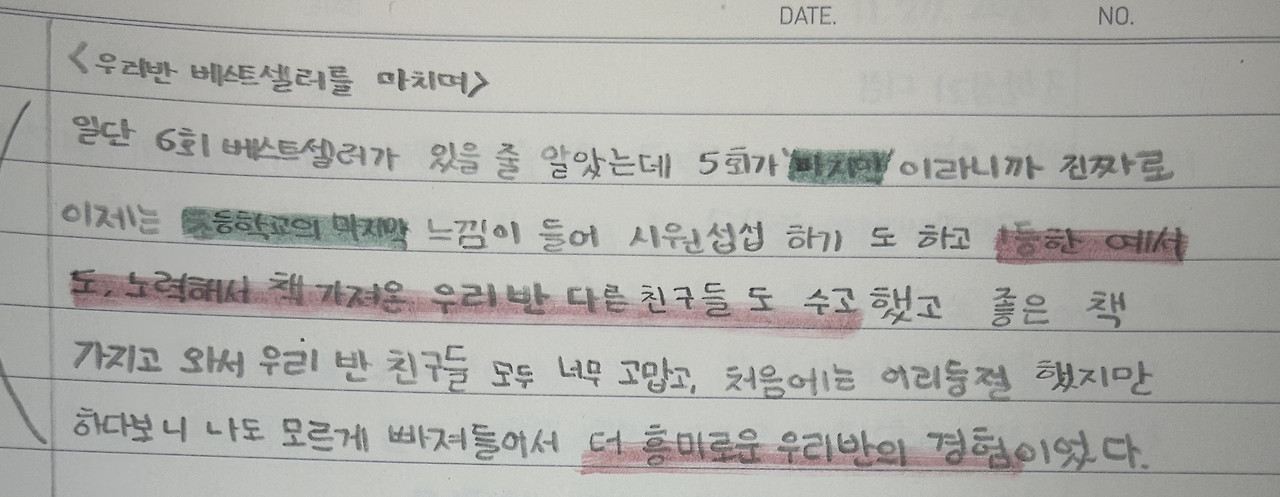 DATE. NO.
<우리반 베스트셀러를 마치며>
일단 6회 베스트셀러가 있을 줄 알았는데 5회가 '마지막' 이라니까 진짜로
이제는 초등학교의 마지막 느낌이 들어 시원섭섭 하기 도 하고 1등한 예서
도, 노력해서 책 가져온 우리 반 다른 친구들 도 수고 했고 좋은 책
가지고 와서 우리 반 친구들 모두 너무 고맙고, 처음에는 어리둥절 했지만
하다보니 나도 모르게 빠져들어서 더 흥미로운 우리반의 경험이었다.